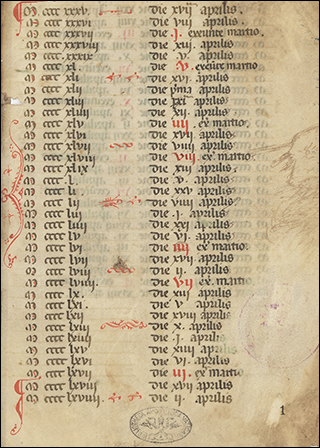 M cccc xxxv. die xvij aprilis.
M cccc xxxvi die viij aprilis.
M cccc xxxvij die .j. exeunte martio.
M cccc xxxviij die xiij aprilis
M cccc xxxix die v aprilis.
M cccc xl die .v. exeunte martio.
M cccc xli die xvi aprilis.
M cccc xlij die pma aprilis
M cccc xliij die xxi aprilis
M cccc xliiij die xij. aprilis
M cccc xlv die iiij ex martio.
M cccc xlvi die xvij aprilis
M cccc xlvij die viiij aprilis
M cccc xlviij die viij ex martio.
M cccc xlix die xiij aprilis.
M cccc l. die v. aprilis.
M cccc li. die xxv aprilis
M cccc lij die viiij aprilis
M cccc liij die .j. aprilis
M cccc liiij die xxi aprilis
M cccc lv die vi. aprilis
M cccc lvi die iiij ex martio.
M cccc lvij die xvij aprilis.
M cccc lviij. die ij. aprilis.
M cccc lviiij die vij ex martio.
M cccc lx. die xiij aprilis
M cccc lxi. die v aprilis
M cccc lxij die xviij aprilis
M cccc lxiij die x. aprilis
M cccc lxiiij die .j. aprilis
M cccc lxv die xiiij aprilis
M cccc lxvi die vi. aprilis
M cccc lxvij die iij. ex martio.
M cccc lxviij die xvij aprilis
M cccc lxviiij. die ij aprilis
1